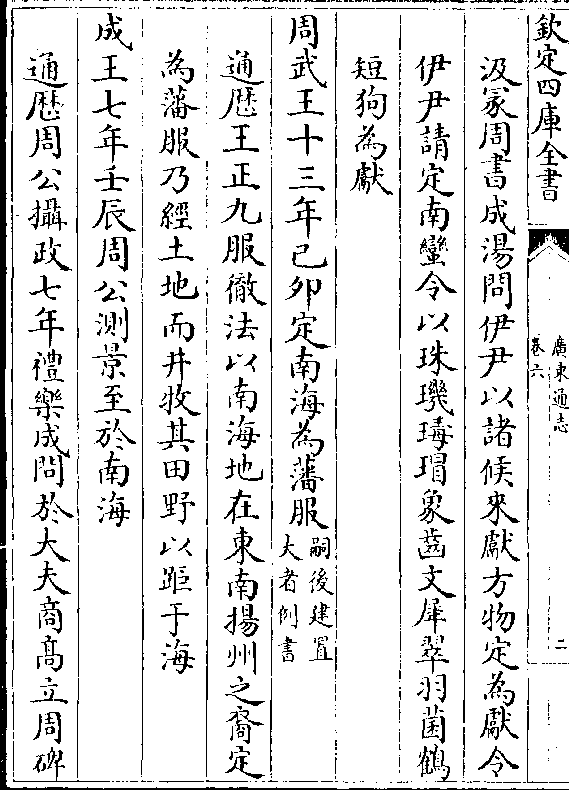 欽定四庫全書
廣東通志
卷六
二
汲冡周書成湯問伊尹以諸侯來獻方物定為獻令
伊尹請定南蠻令以珠璣瑇瑁象齒文犀翠羽菌鶴
短狗為獻
周武王十三年己卯定南海為藩服嗣後建置
大者例書
通歴王正九服徹法以南海地在東南揚州之裔定
為藩服乃經土地而井牧其田野以距于海
成王七年壬辰周公測景至於南海
通歴周公攝政七年禮樂成問於大夫商髙立周碑